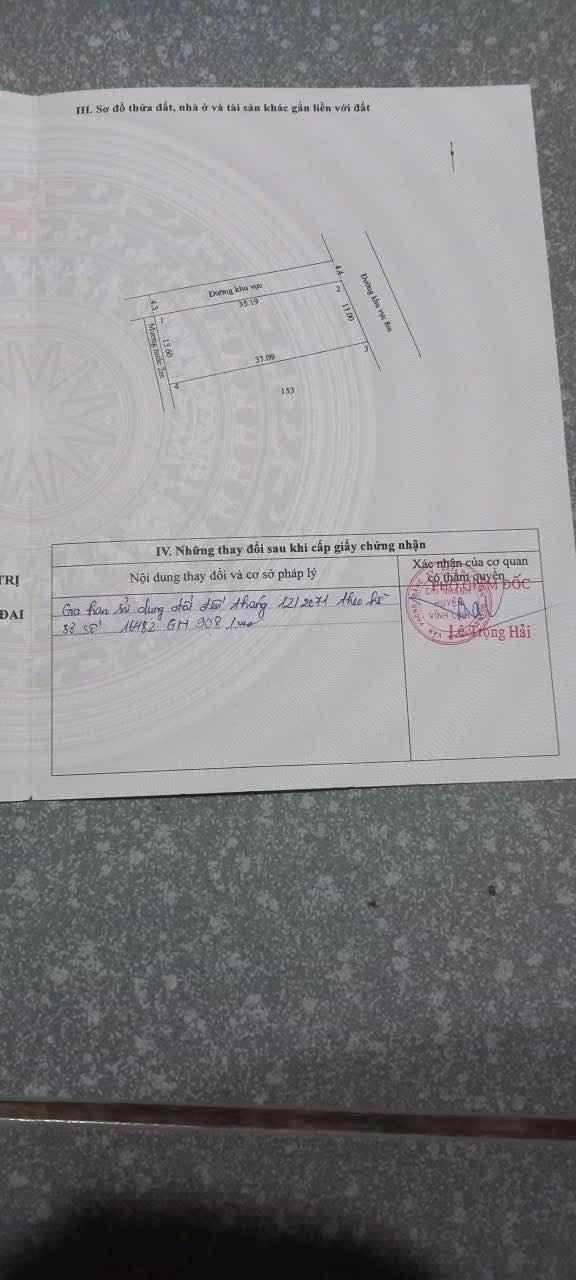 III. Sơ đồ thửa đất, nhà ở và tài sản khác gắn liền với đất
Đường khu vực
35.19
4.3
4.4
1
2
13.60
13.00
Mương nước 2m
Đường khu vực 8m
37.09
3
4
153
IV. Những thay đổi sau khi cấp giấy chứng nhận
Nội dung thay đổi và cơ sở pháp lý
Xác nhận của cơ quan
có thẩm quyền
TRỊ
ĐAI
Gia hạn sử dụng đất đến tháng 12/2071 theo hồ
sơ số 16482 GH 908
PHÓ GIÁM ĐỐC
CHI NHÁNH
HUYỆN
VĨNH CỬU
Lê Trọng Hải